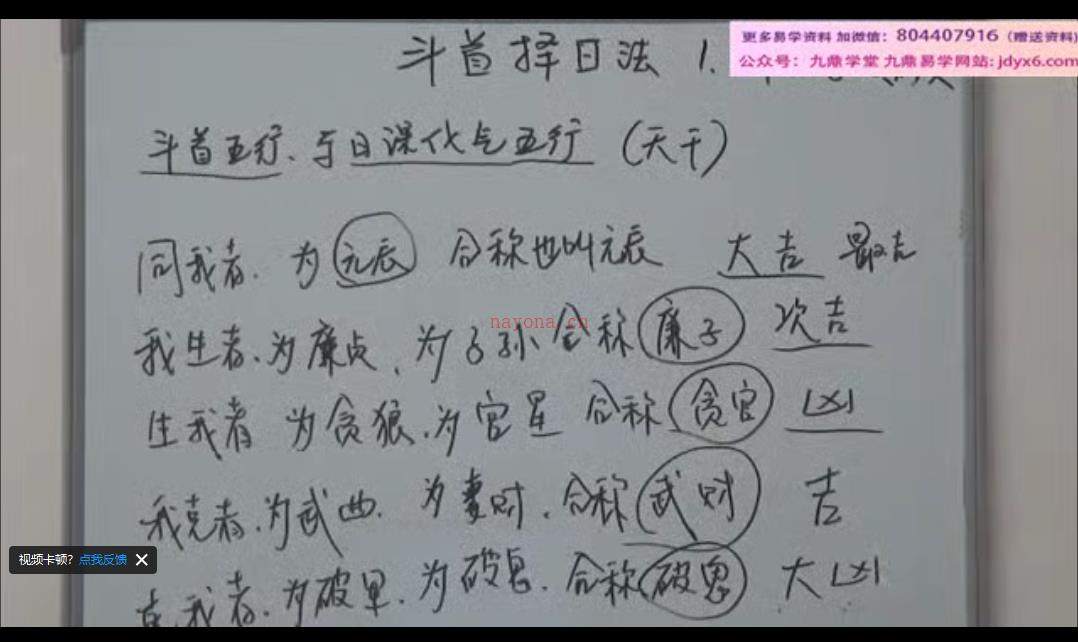 更多易学资料 加微信：804407916（赠送资料)
公众号：九鼎学堂 九鼎易学网站: jdyx6.com
斗首择日法 1.
斗首五行、与日课化气五行（天干）
同我者、为元辰 合称也叫元辰 大吉 最吉
我生者、为廉贞、为子孙 合称廉子 次吉
nayona.cn
生我者 为贪狼、为官星 合称贪官 凶
我克者、为武曲、为妻财、合称武财 吉
视频卡顿? 点我反馈
克我者、为破军、为破鬼、合称破鬼 大凶